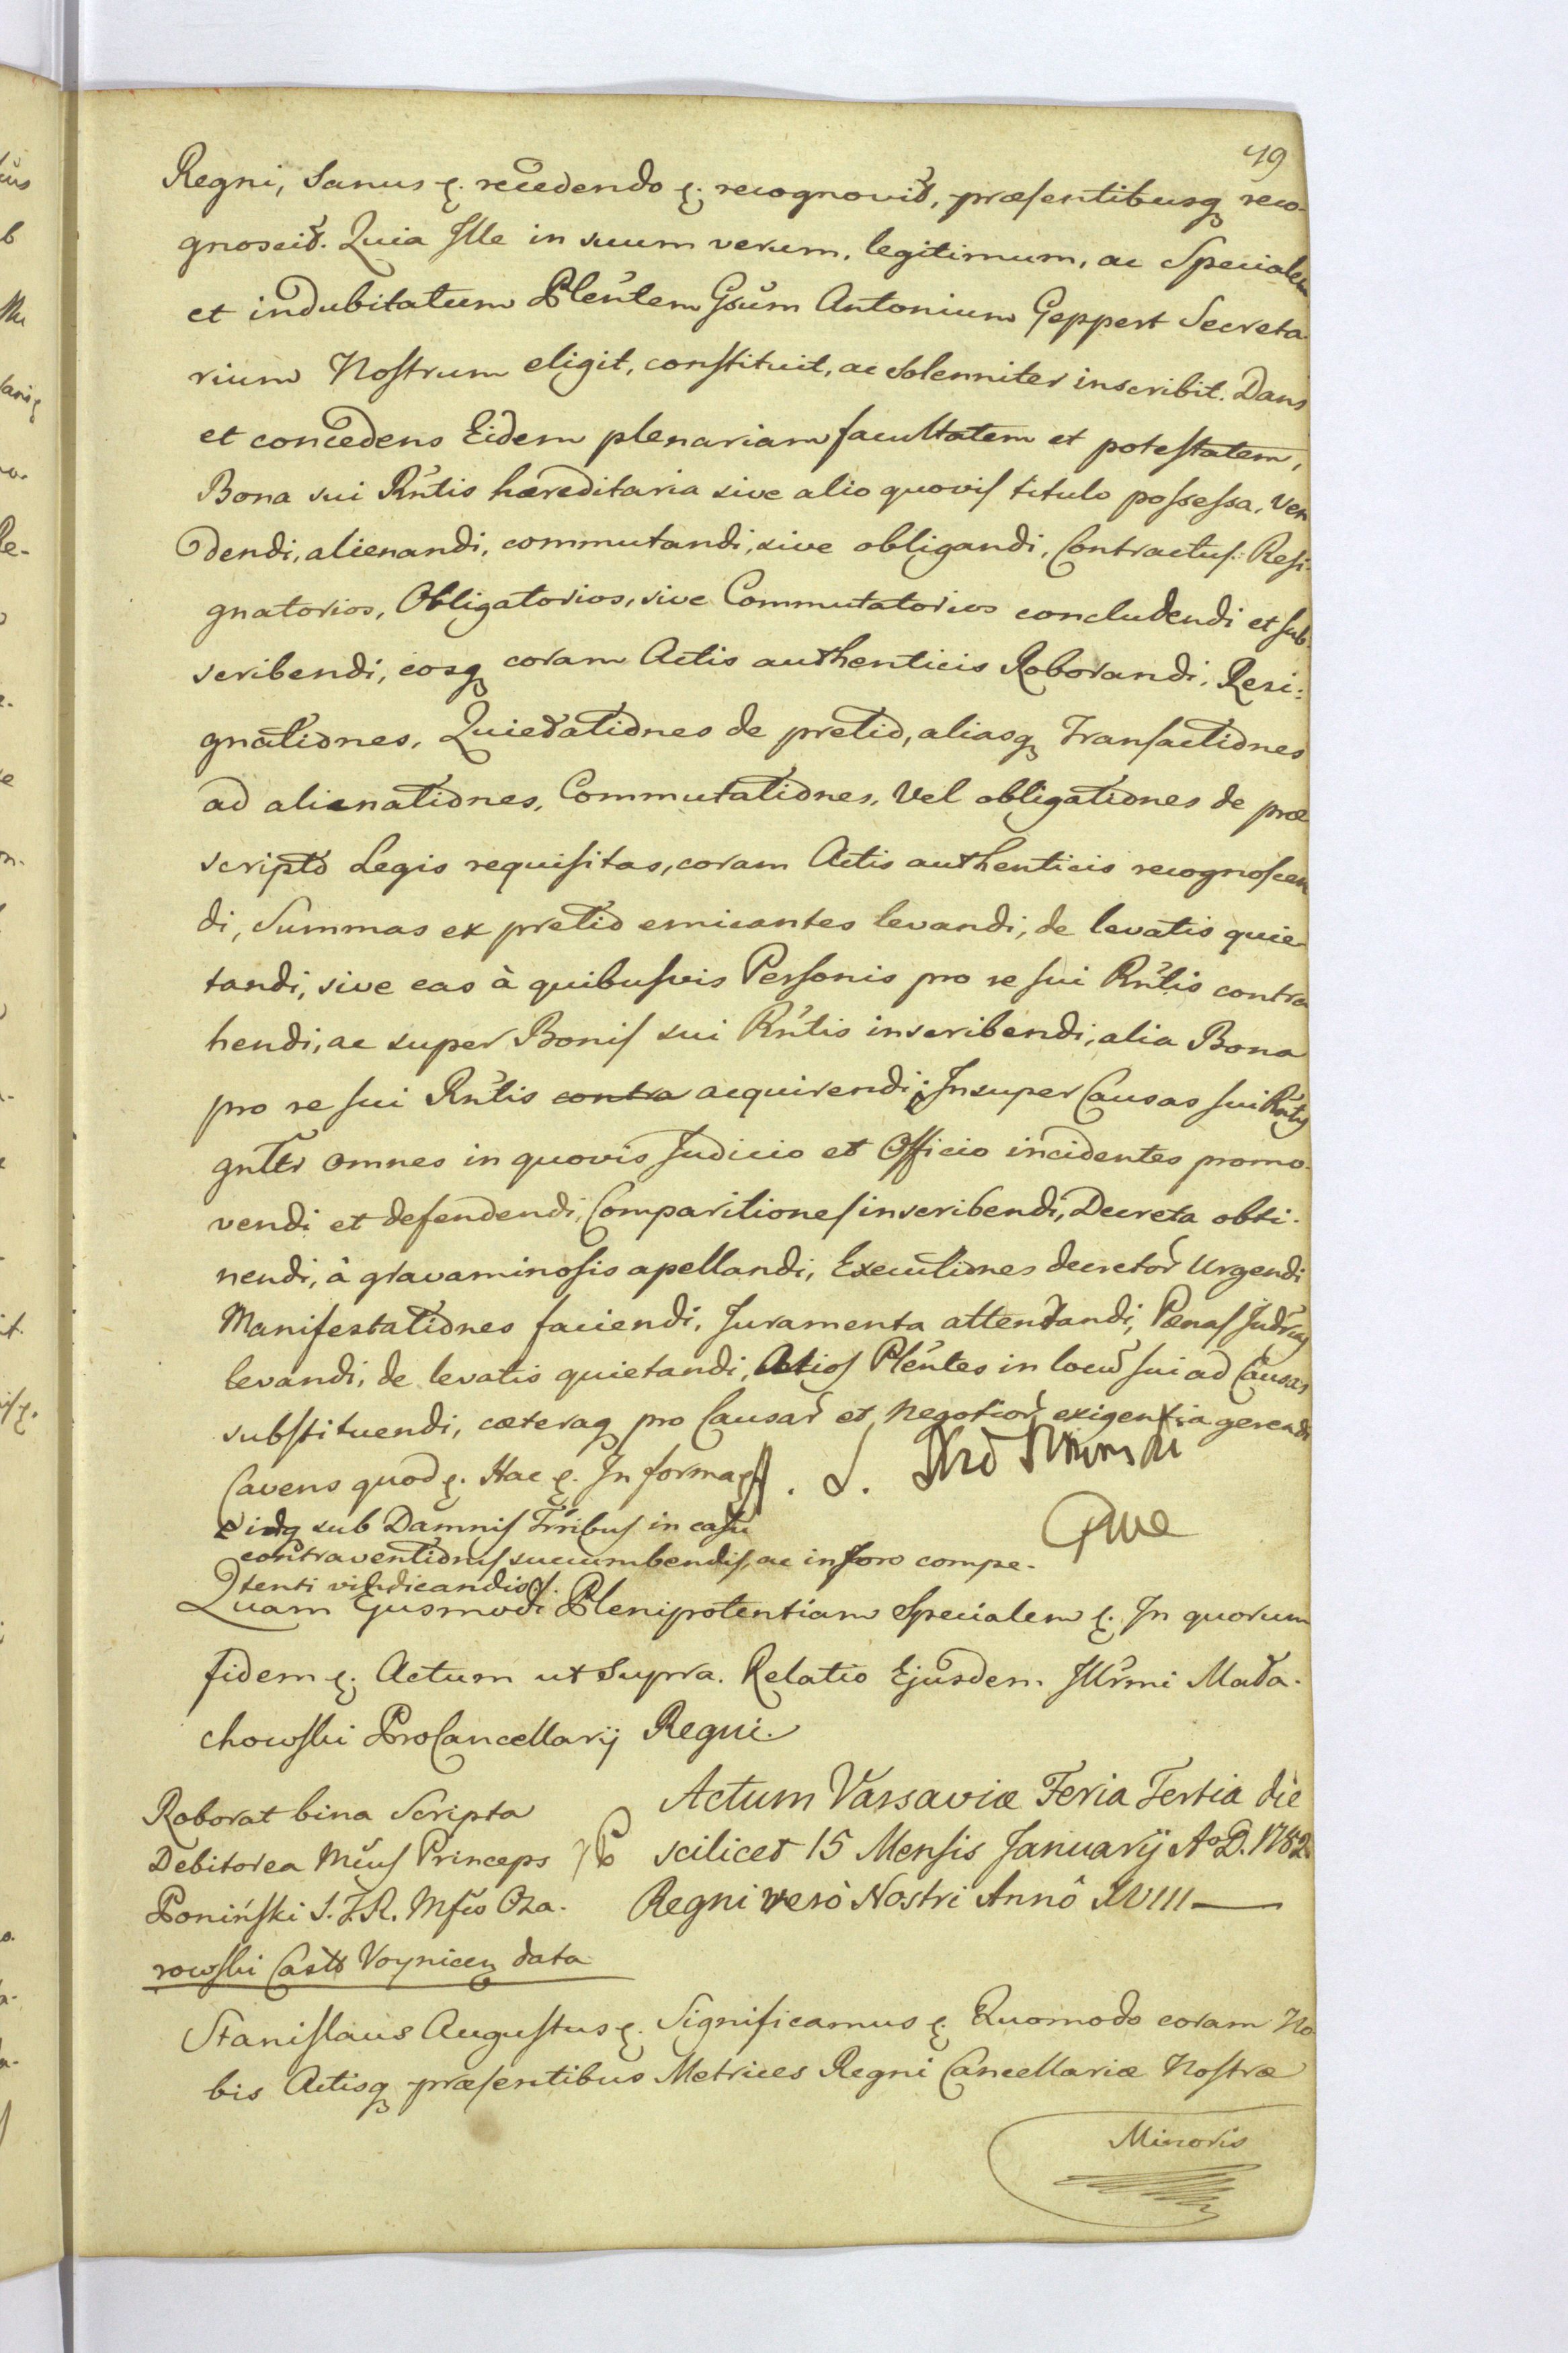 49
Regni, Sanus ꝛ. recedendo ꝛ. recognovit, præsentibusq̨ reco-
gnoscit. Quia Ille in suum verum, legitimum, ac Specialem
et indubitatum Plentem Gsum Antonium Geppert Secreta-
rium Nostrum eligit, constituit, ac solenniter inscribit. Dans
et concedens Eidem plenariam facultatem et potestatem,
Bona sui Rńtis hæreditaria sive alio quovis titulo possessa, Ven
dendi, alienandi, commutandi, sive obligandi, Contractus: Resi-
gnatorios, Obligatorios, sive Commutatorios concludendi et sub-
scribendi, eosq̨ coram Actis authenticis Roborandi, Resi:
gnationes, Quietationes de pretio, aliasq̨ Transactiones
ad alienationes, Commutationes, Vel obligationes de præ
scripto Legis requisitas, coram Actis authenticis recognoscen
di, Summas ex pretio emicantes levandi, de levatis quie-
tandi, sive eas à quibusvis Personis pro re sui Rńtis contra
hendi, ac super Bonis sui Rńtis inscribendi, alia Bona
pro re sui Rńtis contra acquirendi; Insuper Causas sui Rńtis
gnltr omnes in quovis Judicio et Officio incidentes promo-
vendi et defendendi, Comparitiones inscribendi, Decreta obti-
nendi, à gravaminosis apellandi, Executiones decretor̃ Urgendi
Manifestationes faciendi, Juramenta attentandi, Pænas
levandi, de levatis quietandi, Alios Plentes in locũ sui ad Causas
substituendi, cæteraq̨ pro Causar̃ et Negotior̃ exigentia gerendi
Cavens quod ꝛ. Hac ꝛ. In forma ꝛ A. L. Pro
idq̨ sub Damnis Trribus in casu
contraventionis succumbendis, ac in foro compe-
tenti vindicandis ꝛ.
Quam Ejusmodi Plenipotentiam Specialem ꝛ. In quorum
fidem ꝛ. Actum ut Supra. Relatio Ejusdem Illrmi Mała-
chowski ProCancellarij Regni.
Roborat bina Scripta
Debitorea Mcus Princeps
Poniński S. T. R. Mfco Oża-
rowski Castro Voynicen̨ data
Actum Varsaviæ Feria Tertia die
scilicet 15 Mensis Januarij Ao D. 1782
Regni verò Nostri Annô XVIII
Stanislaus Augustus ꝛ. Significamus ꝛ. Quomodo coram No
bis Actisq̨ præsentibus Metrices Regni Cancellariæ Nostræ
Minoris